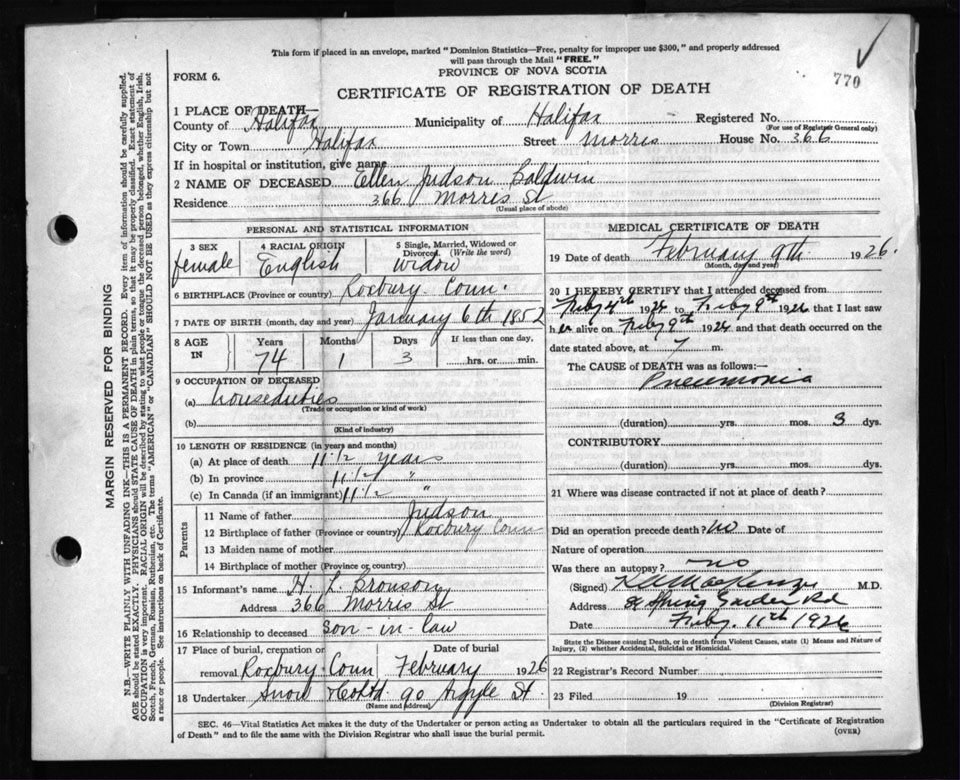 This form if placed in an envelope, marked "Dominion Statistics—Free, penalty for improper use $300," and properly addressed
will pass through the Mail "FREE."
770
FORM 6.
PROVINCE OF NOVA SCOTIA
CERTIFICATE OF REGISTRATION OF DEATH
MARGIN RESERVED FOR BINDING
N.B.—WRITE PLAINLY WITH UNFADING INK—THIS IS A PERMANENT RECORD. Every item of information should be carefully supplied.
AGE should be stated EXACTLY. PHYSICIANS should STATE CAUSE OF DEATH in plain terms, so that it may be properly classified. Exact statement of
OCCUPATION is very important. RACIAL ORIGIN will be described by stating to what people or tongue the deceased person belonged, whether English, Irish,
Scotch, French, German, Russian, Ruthenian, etc. The terms "AMERICAN" or "CANADIAN" SHOULD NOT BE USED as they express citizenship but not
a race or people. See instructions on back of Certificate.
1 PLACE OF DEATH—
County of Halifax Municipality of Halifax Registered No.
(For use of Registrar General only)
City or Town Halifax Street Morris House No. 366
If in hospital or institution, give name
2 NAME OF DECEASED Ellen Judson Baldwin
Residence 366 Morris St
(Usual place of abode)
PERSONAL AND STATISTICAL INFORMATION
3 SEX 4 RACIAL ORIGIN 5 Single, Married, Widowed or
Divorced (Write the word)
female English widow
6 BIRTHPLACE (Province or country) Roxbury Conn.
7 DATE OF BIRTH (month, day and year) January 6th 1852
8 AGE IN Years Months Days If less than one day.
74 1 3 hrs. or min.
9 OCCUPATION OF DECEASED
(a) houseduties
(Trade or occupation or kind of work)
(b)
(Kind of industry)
10 LENGTH OF RESIDENCE (in years and months)
(a) At place of death 11 1/2 years
(b) In province 11 1/2 "
(c) In Canada (if an immigrant) 11 1/2 "
Parents
11 Name of father Judson
12 Birthplace of father (Province or country) Roxbury Conn
13 Maiden name of mother
14 Birthplace of mother (Province or country)
15 Informant's name H. L. Bronson
Address 366 Morris St
16 Relationship to deceased Son-in-law
17 Place of burial, cremation or Date of burial
removal Roxbury Conn February 1926
18 Undertaker Snow & Co Ltd 90 Argyle St.
(Name and address)
MEDICAL CERTIFICATE OF DEATH
19 Date of death February 9th 1926.
(Month, day and year)
20 I HEREBY CERTIFY that I attended deceased from
Feby 4th 1926 to Feby 9th 1926 that I last saw
her alive on Feby 9th 1926 and that death occurred on the
date stated above, at 7 m.
The CAUSE OF DEATH was as follows:—
Pneumonia
(duration) yrs. mos. 3 dys.
CONTRIBUTORY
(duration) yrs. mos. dys.
21 Where was disease contracted if not at place of death?
Did an operation precede death? no Date of
Nature of operation
Was there an autopsy? no
(Signed) K A MacKenzie M.D.
Address Spring Garden Rd
Date Feby. 11th 1926
State the Disease causing Death, or in death from Violent Causes, state (1) Means and Nature of
Injury, (2) whether Accidental, Suicidal or Homicidal.
22 Registrar's Record Number
23 Filed 19
(Division Registrar)
SEC. 46—Vital Statistics Act makes it the duty of the Undertaker or person acting as Undertaker to obtain all the particulars required in the "Certificate of Registration
of Death" and to file the same with the Division Registrar who shall issue the burial permit.
(OVER)